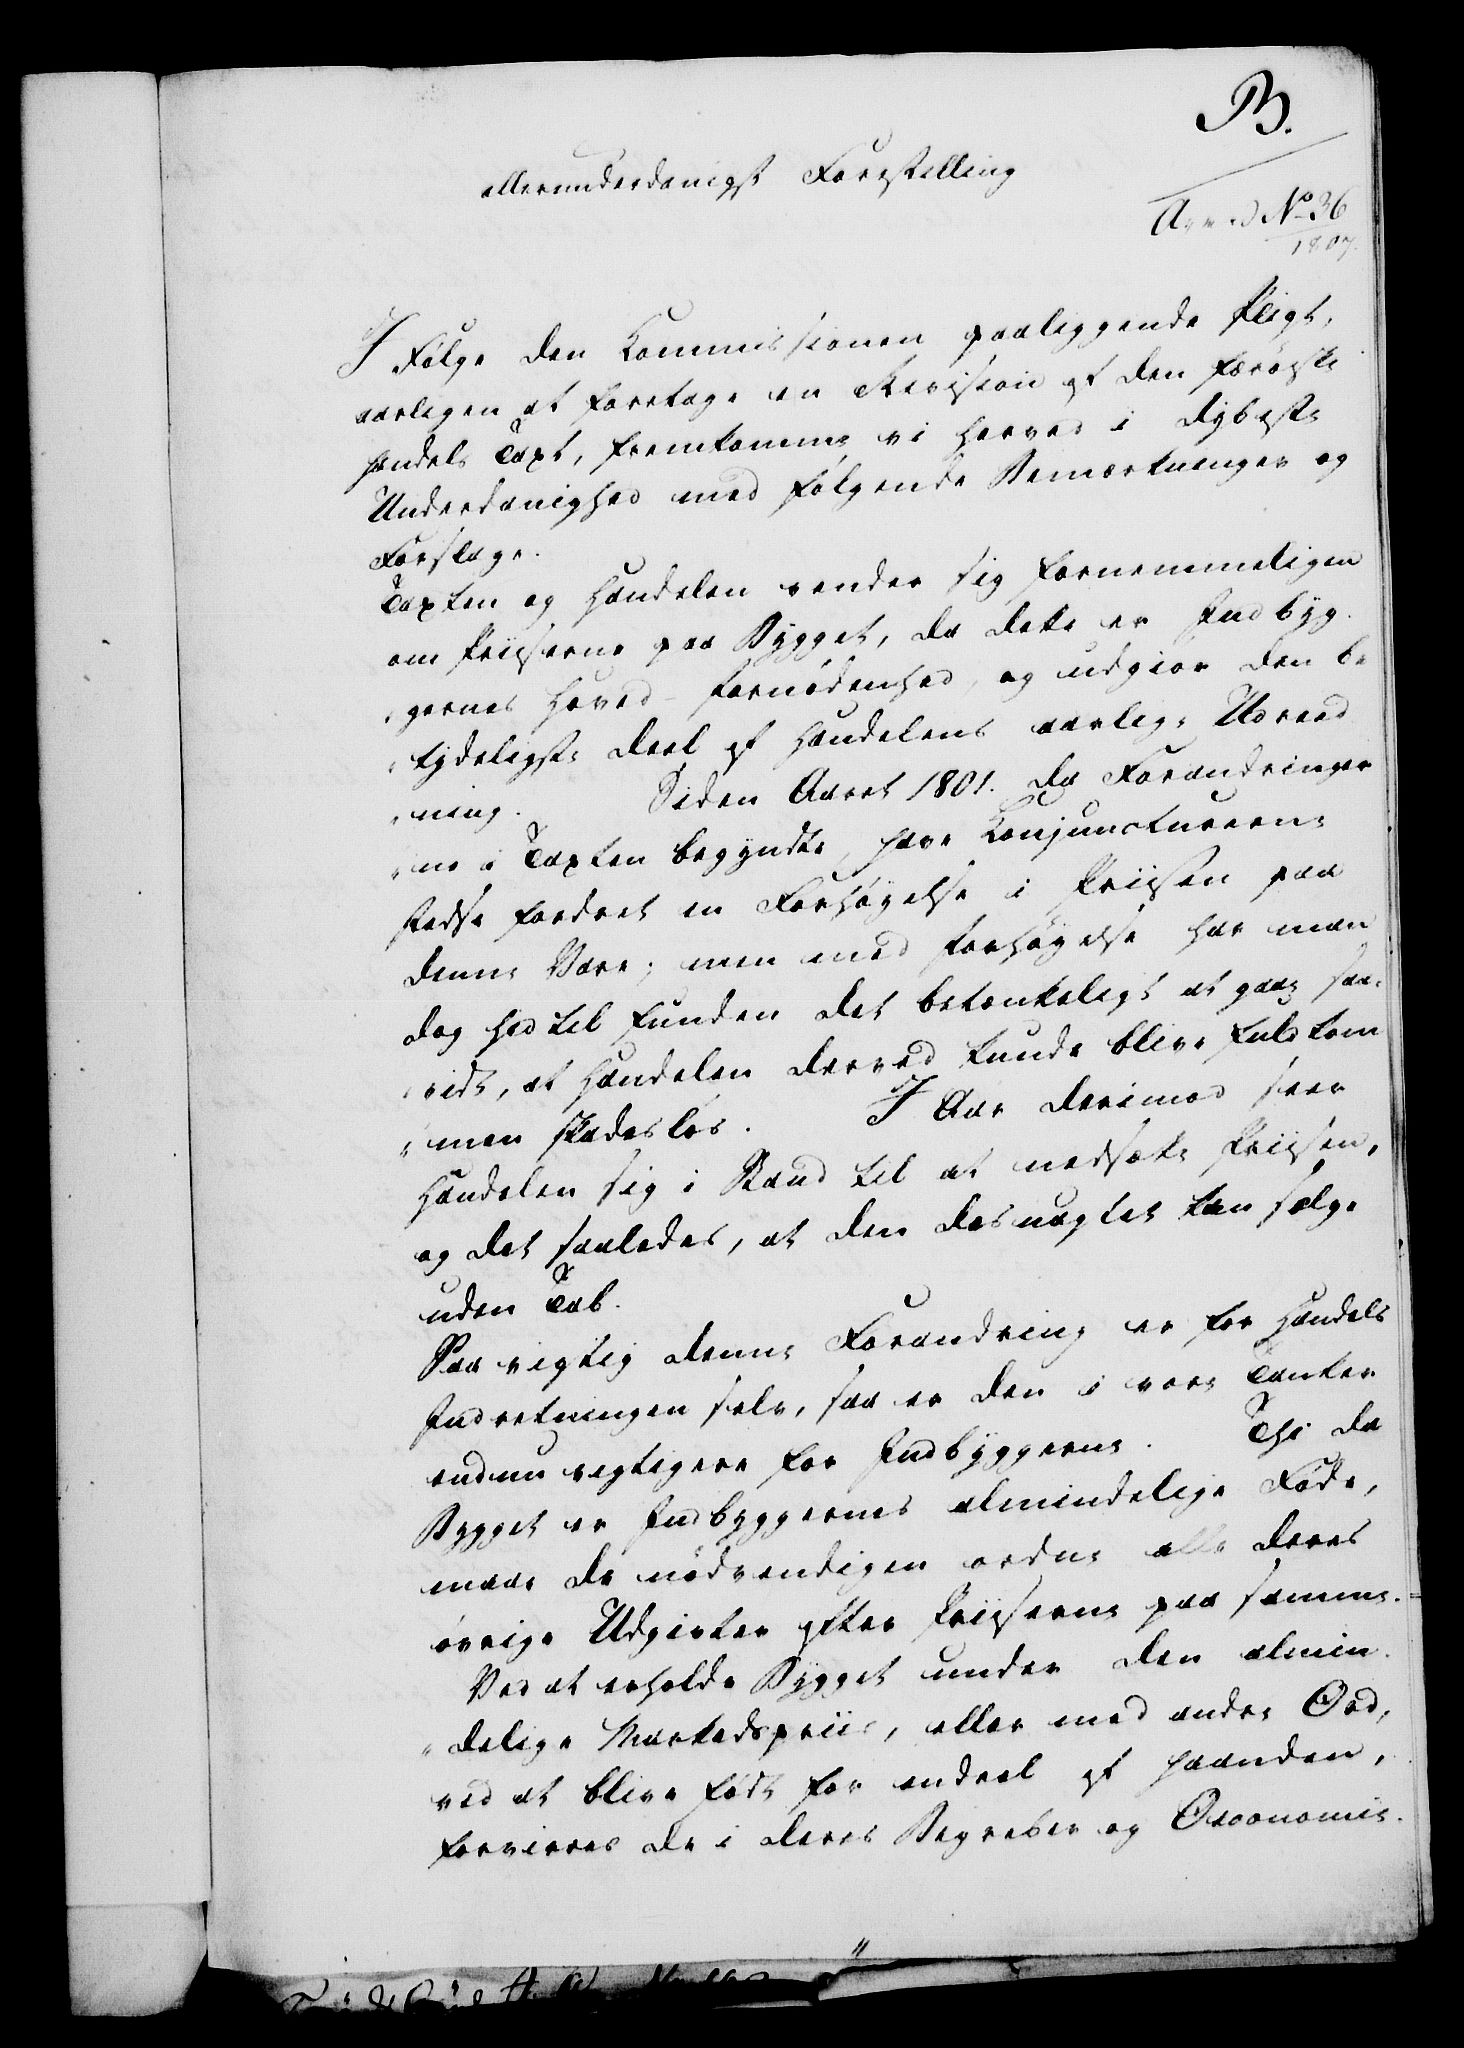 B.
allerunderdanigst Forestilling
No 36
1807.
I Følge den Kommissionen paaliggende Pligt,
aarligen at foretage en Revision af den færøiske
Handels Taxt, fremkomme vi herved i dybeste
Underdanighed med følgende Bemærkninger og
Forslage.
Taxten og Handelen vender sig fornemmeligen
om Priserne paa Bygget, da dette er Indbyg-
gernes Hoved-Fornødenhed, og udgiør den be
tydeligste Deel af Handelens aarlige Udreed
ning. Siden Aaret 1801. da Forandringer
ne i Taxten begyndte, have Konjuncturerne
stedse fordret en Forhøyelse i Priisen paa
denne Vare; men med Forhøyelse har man
dog hidtil funden det betænkeligt at gaae saa-
vidt, at Handelen derved kunde blive fuldkom
men skadesløs. I Aar derimod seer
Handelen sig i Stand til at nedsætte Priisen,
og det saaledes, at den desuagtet kan sælge
uden Tab.
Saa vigtig denne Forandring er for Handels
Indretningen selv, saa er den i vore Tanker
endnu vigtigere for Indbyggerne. Thi da
Bygget er Indbyggernes almindelige Føde,
maae de nødvendigen ordne alle deres
øvrige Udgivter efter Priiserne paa samme.
Ved at erholde Bygget under den almin-
delige Markedspriis, eller med andre Ord,
ved at blive født for endeel af Haanden,
forvirres de i deres Begreber og Oeconomie.